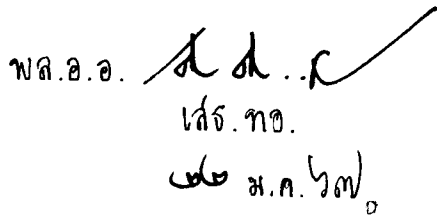 พล.อ.อ.
เสธ.ทอ.
๒๒ ม.ค. ๖๗